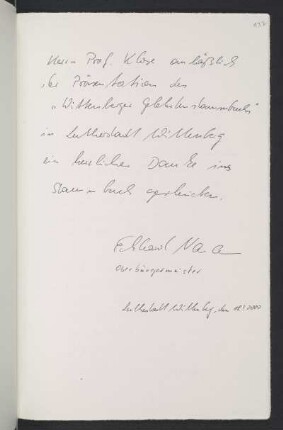 Herrn Prof. Klose anläßlich
der Präsentation des
„Wittenberger Gelehrtenstammbuch“
in Lutherstadt Wittenberg
ein herzliches Danke ins
Stammbuch geschrieben.
Eckhard Naumann
Oberbürgermeister
Lutherstadt Wittenberg, den